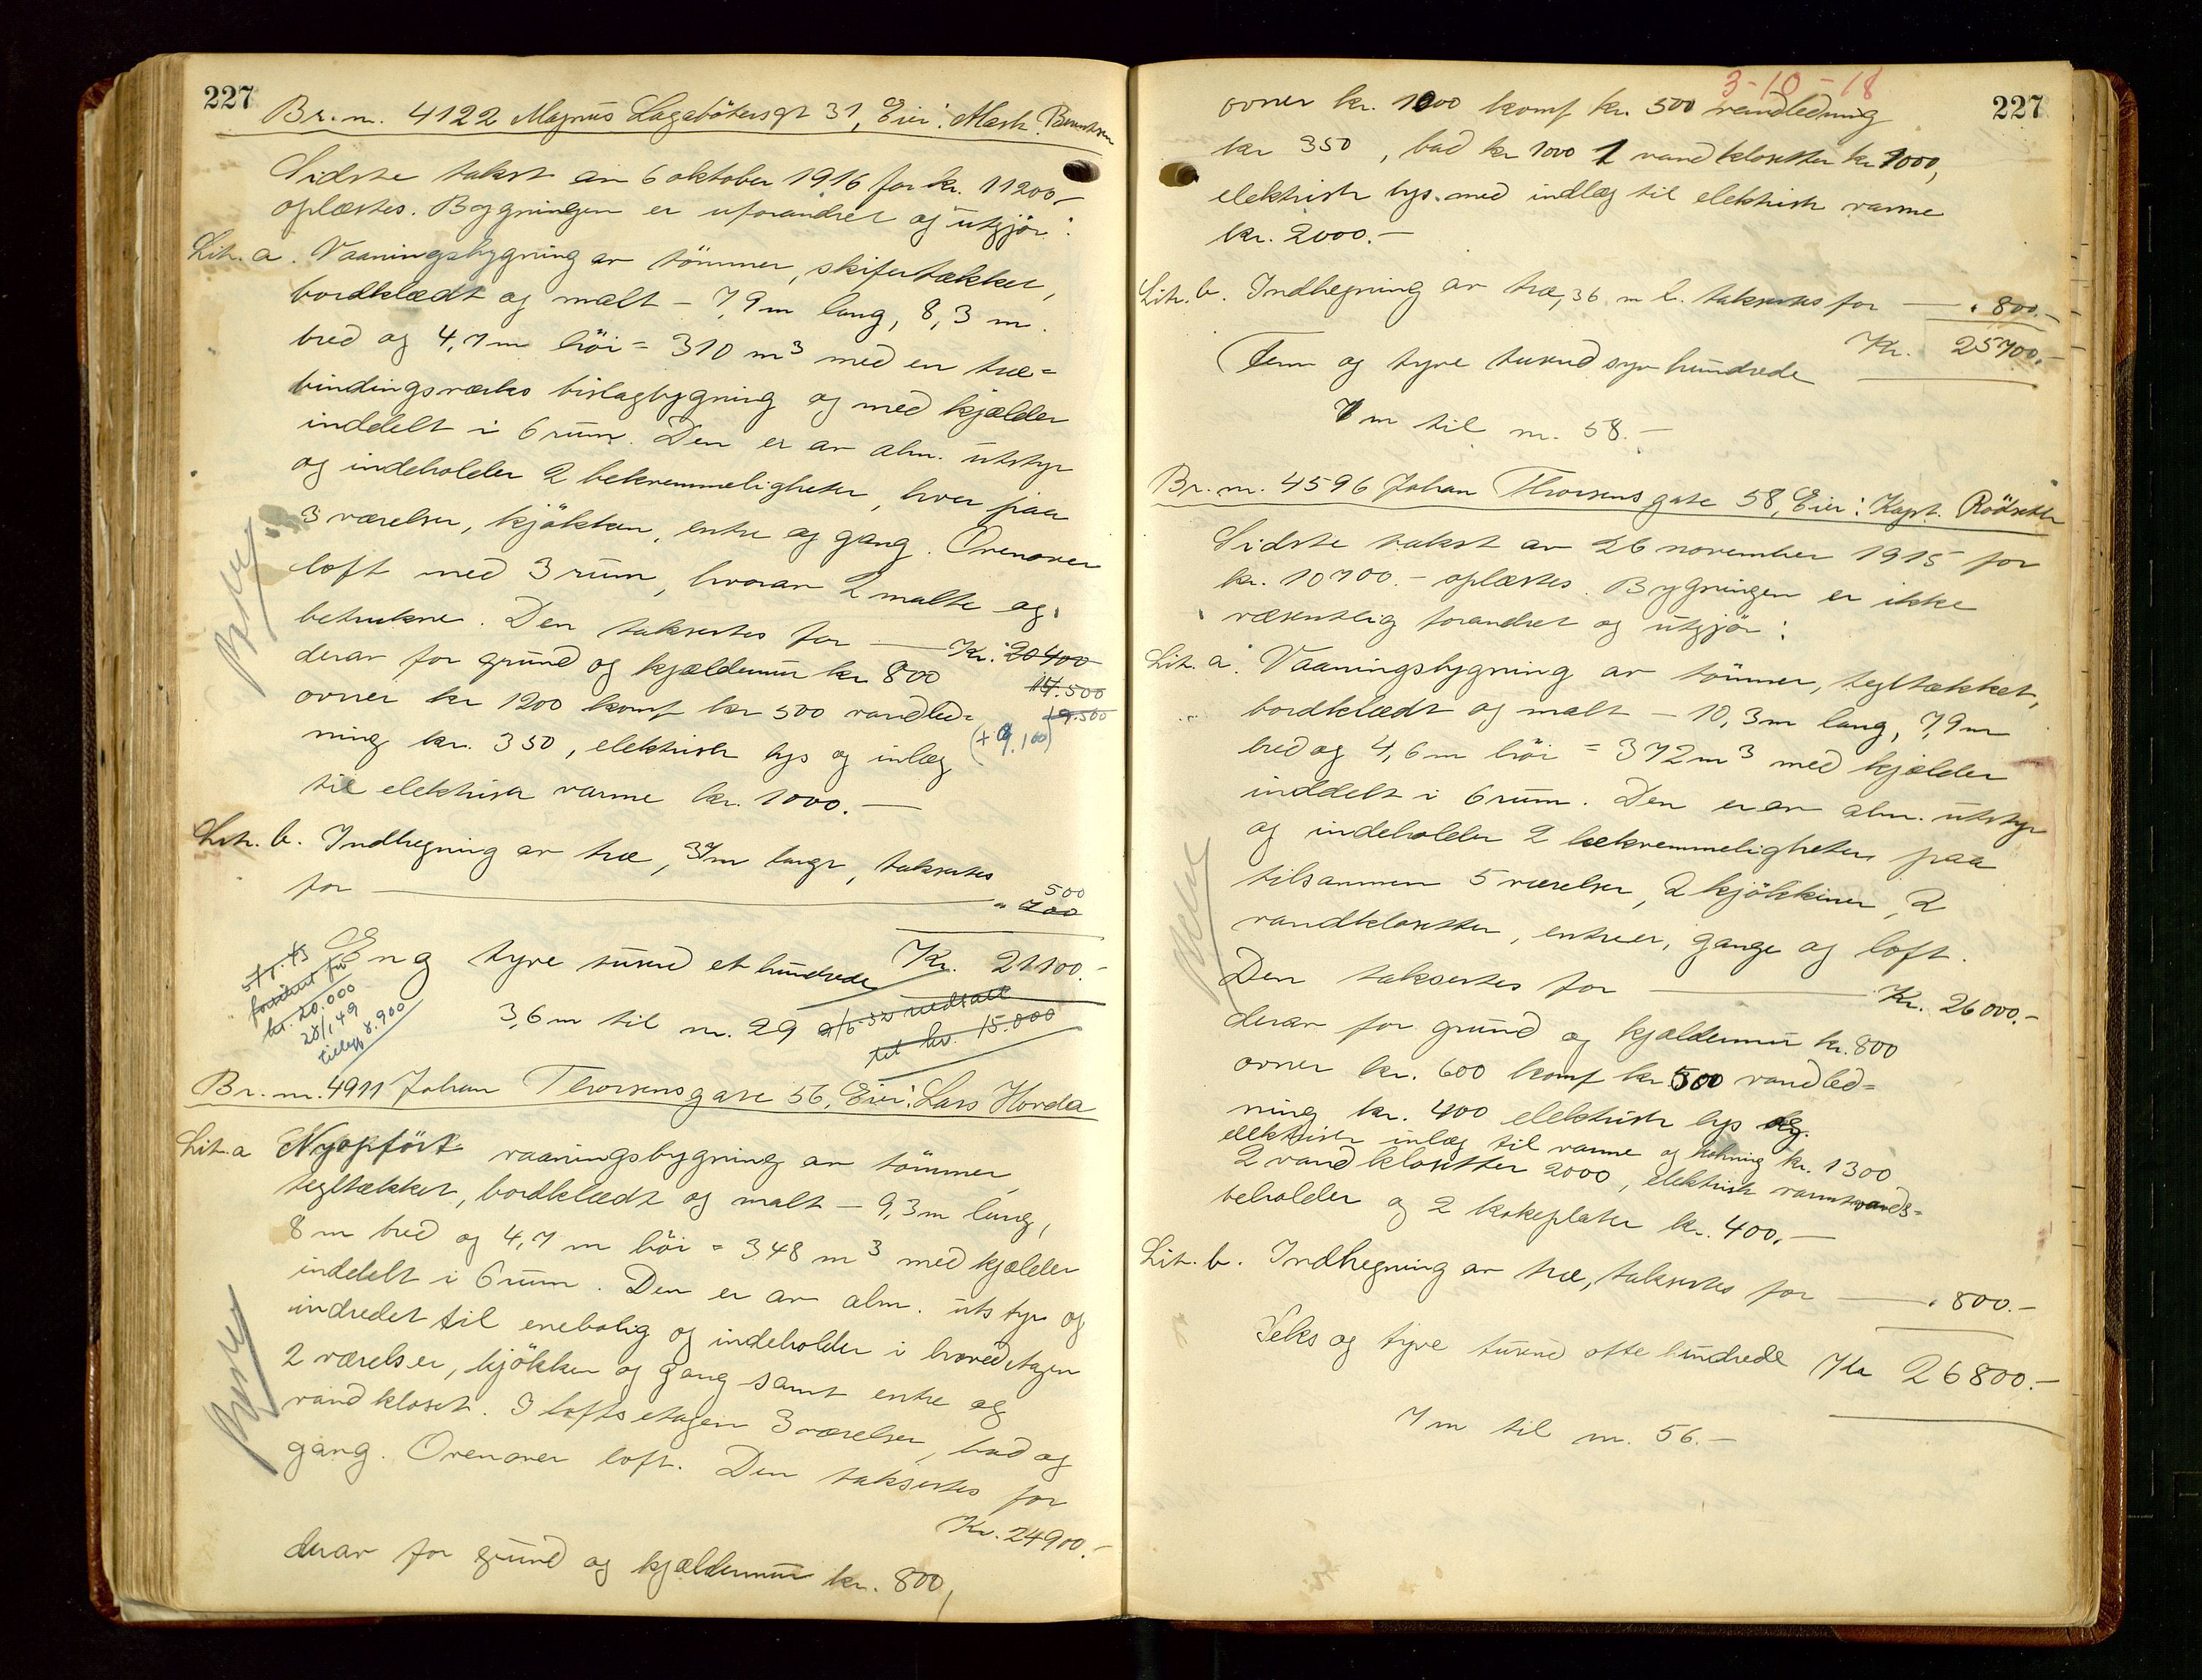 227
Br. nr. 4122 Magnus Lagabötersgt 31, Eier: Mask. Berntsen
Sidste takst av 6 oktober 1916 for kr. 11200,-
oplæstes. Bygningen er uforandret og utgjör:
Lit. a. Vaaningsbygning av tömmer, skifertækket,
bordklædt og malt - 7,9 m lang, 8,3 m.
bred og 4,7 m höi = 310 m³ med en træ=
bindingsverks bislagbygning og med kjælder
inddelt i 6 rum. Den er av alm. utstyr
og indeholder 2 bekvemmeligheter, hver paa
3 værelser, kjökken, entre og gang. Ovenover
loft med 3 rum, hvorav 2 malte og
betrukne. Den taksertes for — Kr. 20400
derav for grund og kjældermur kr 800
17.500
ovner kr 1200 komf kr 500 vandled=
19.500
ning kr. 350, elektrisk lys og inlæg
(+ 9.100)
til elektrisk varme kr. 1000.—
Lit. b. Indhegning av træ, 37 m lang, taksertes
500
for — " 700
Eng tyve tusend et hundrede Kr. 21100.-
3,6 m til nr. 29
2/6 32 nedsatt
til kr. 15.000
5/7. 45
forsikret for
kr. 20.000
28/1 49
tillegg 8.900
Br. nr. 4911 Johan Thorsens gate 56, Eier: Lars Horda
Lit. a Nyopfört vaaningsbygning av tömmer,
tegltækket, bordklædt og malt - 9,3 m lang,
8 m bred og 4,7 m höi = 348 m³ med kjælder
inddelt i 6 rum. Den er av alm. utstyr og
indredet til enebolig og indeholder i hovedetagen
2 værelser, kjökken og gang samt entre og
vandkloset. I loftsetagen 3 værelser, bad og
gang. Ovenover loft. Den taksertes for
Kr. 24900.-
derav for grund og kjældermur kr. 800,
3-10-18
227
ovner kr. 1000 komf kr. 500 vandledning
kr 350, bad kr 1000 1 vandklosetter kr 1000,
elektrisk lys med indlæg til elektrisk varme
kr. 2000.-
Lit. b. Indhegning av træ, 36 m l. taksertes for — " 800.-
Kr. 25700.-
Fem og tyve tusend syv hundrede
7 m til nr. 58.-
Br. nr. 4596 Johan Thorsens gate 58, Eier: Kapt. Rödseth
Sidste takst av 26 november 1915 for
kr. 10700.- oplæstes. Bygningen er ikke
væsentlig forandret og utgjör:
Lit. a. Vaaningsbygning av tömmer, tegltækket,
bordklædt og malt - 10,3 m lang, 7,9 m
bred og 4,6 m höi = 372 m³ med kjælder
inddelt i 6 rum. Den er av alm. utstyr
og indeholder 2 bekvemmeligheter paa
tilsammen 5 værelser, 2 kjökkener, 2
vandklosetter, entreer, gange og loft.
Den taksertes for — Kr. 26000.-
derav for grund og kjældermur kr. 800
ovner kr. 600 komf kr. 500 vandled=
ning kr. 400 elektrisk lys og
elektrisk inlæg til varme og kokning kr. 1300
2 vandklosetter 2000, elektrisk varmtvands=
beholder og 2 kokeplater kr. 400.—
Lit. b. Indhegning av træ, taksertes for — " 800.-
Seks og tyve tusend otte hundrede Kr 26800.-
7 m til nr. 56.-